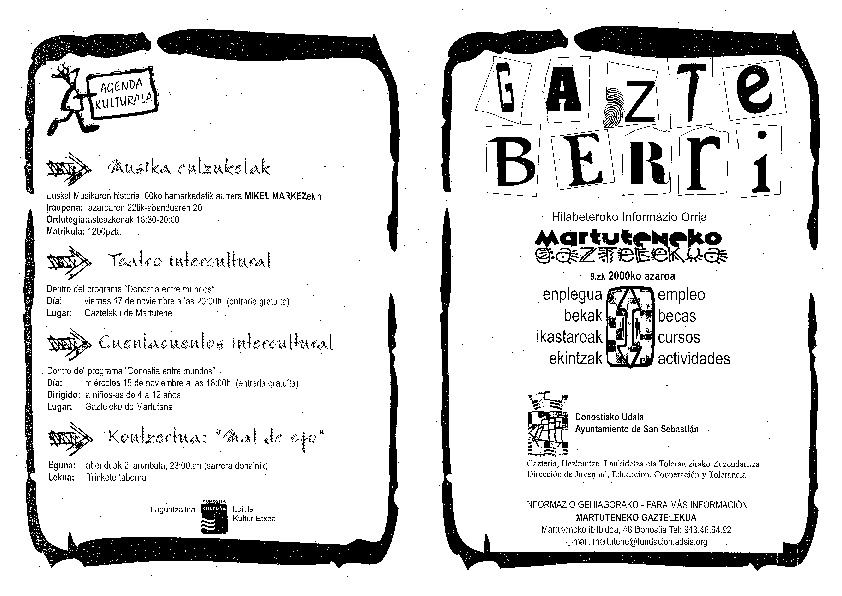 AGENDA
KULTURALA
Musika eulzukelak
Euskal Musikaren historia 60ko hamarkadatik aurrera MIKEL MARKEZekin
Iraupena: azaroaren 22tik-abenduaren 20
Ordutegia: asteazkenak 18:30-20:00
Matrikula: 1200pzta.
Teatro intercultural
Dentro del programa "Donostia entre mundos"
Día: viernes 17 de noviembre a las 20:00h. (entrada gratuita)
Lugar: Gazteleku de Martutene
Cuentacuentos intercultural
Dentro del programa "Donostia entre mundos"
Día: miércoles 15 de noviembre a las 18:00h. (entrada gratuita)
Dirigido: a niños-as de 4 a 12 años
Lugar: Gazteleku de Martutene
Kontzertua: "Mal de ojo"
Eguna: abenduak 2, larunbata, 23:00etan (sarrera dohainik)
Lekua: Trinkete taberna
Laguntzailea
DONOSTIA
KULTURA
Kultur Etxea
GAZTE
BERRI
Hilabeteroko Informazio Orria
Martuteneko
GAZTELEKUA
9.zk 2000ko azaroa
enplegua empleo
bekak becas
ikastaroak cursos
ekintzak actividades
Donostiako Udala
Ayuntamiento de San Sebastián
Gazteria, Hezkuntza, Lankidetza eta Tolerantziako Zuzendaritza
Dirección de Juventud, Educación, Cooperación y Tolerancia
INFORMAZIO GEHIAGORAKO - PARA MÁS INFORMACIÓN
MARTUTENEKO GAZTELEKUA
Martuteneko ibilbidea, 46 Donostia Tel: 943.46.64.92
e-mail: martutene@fundacion.adsis.org